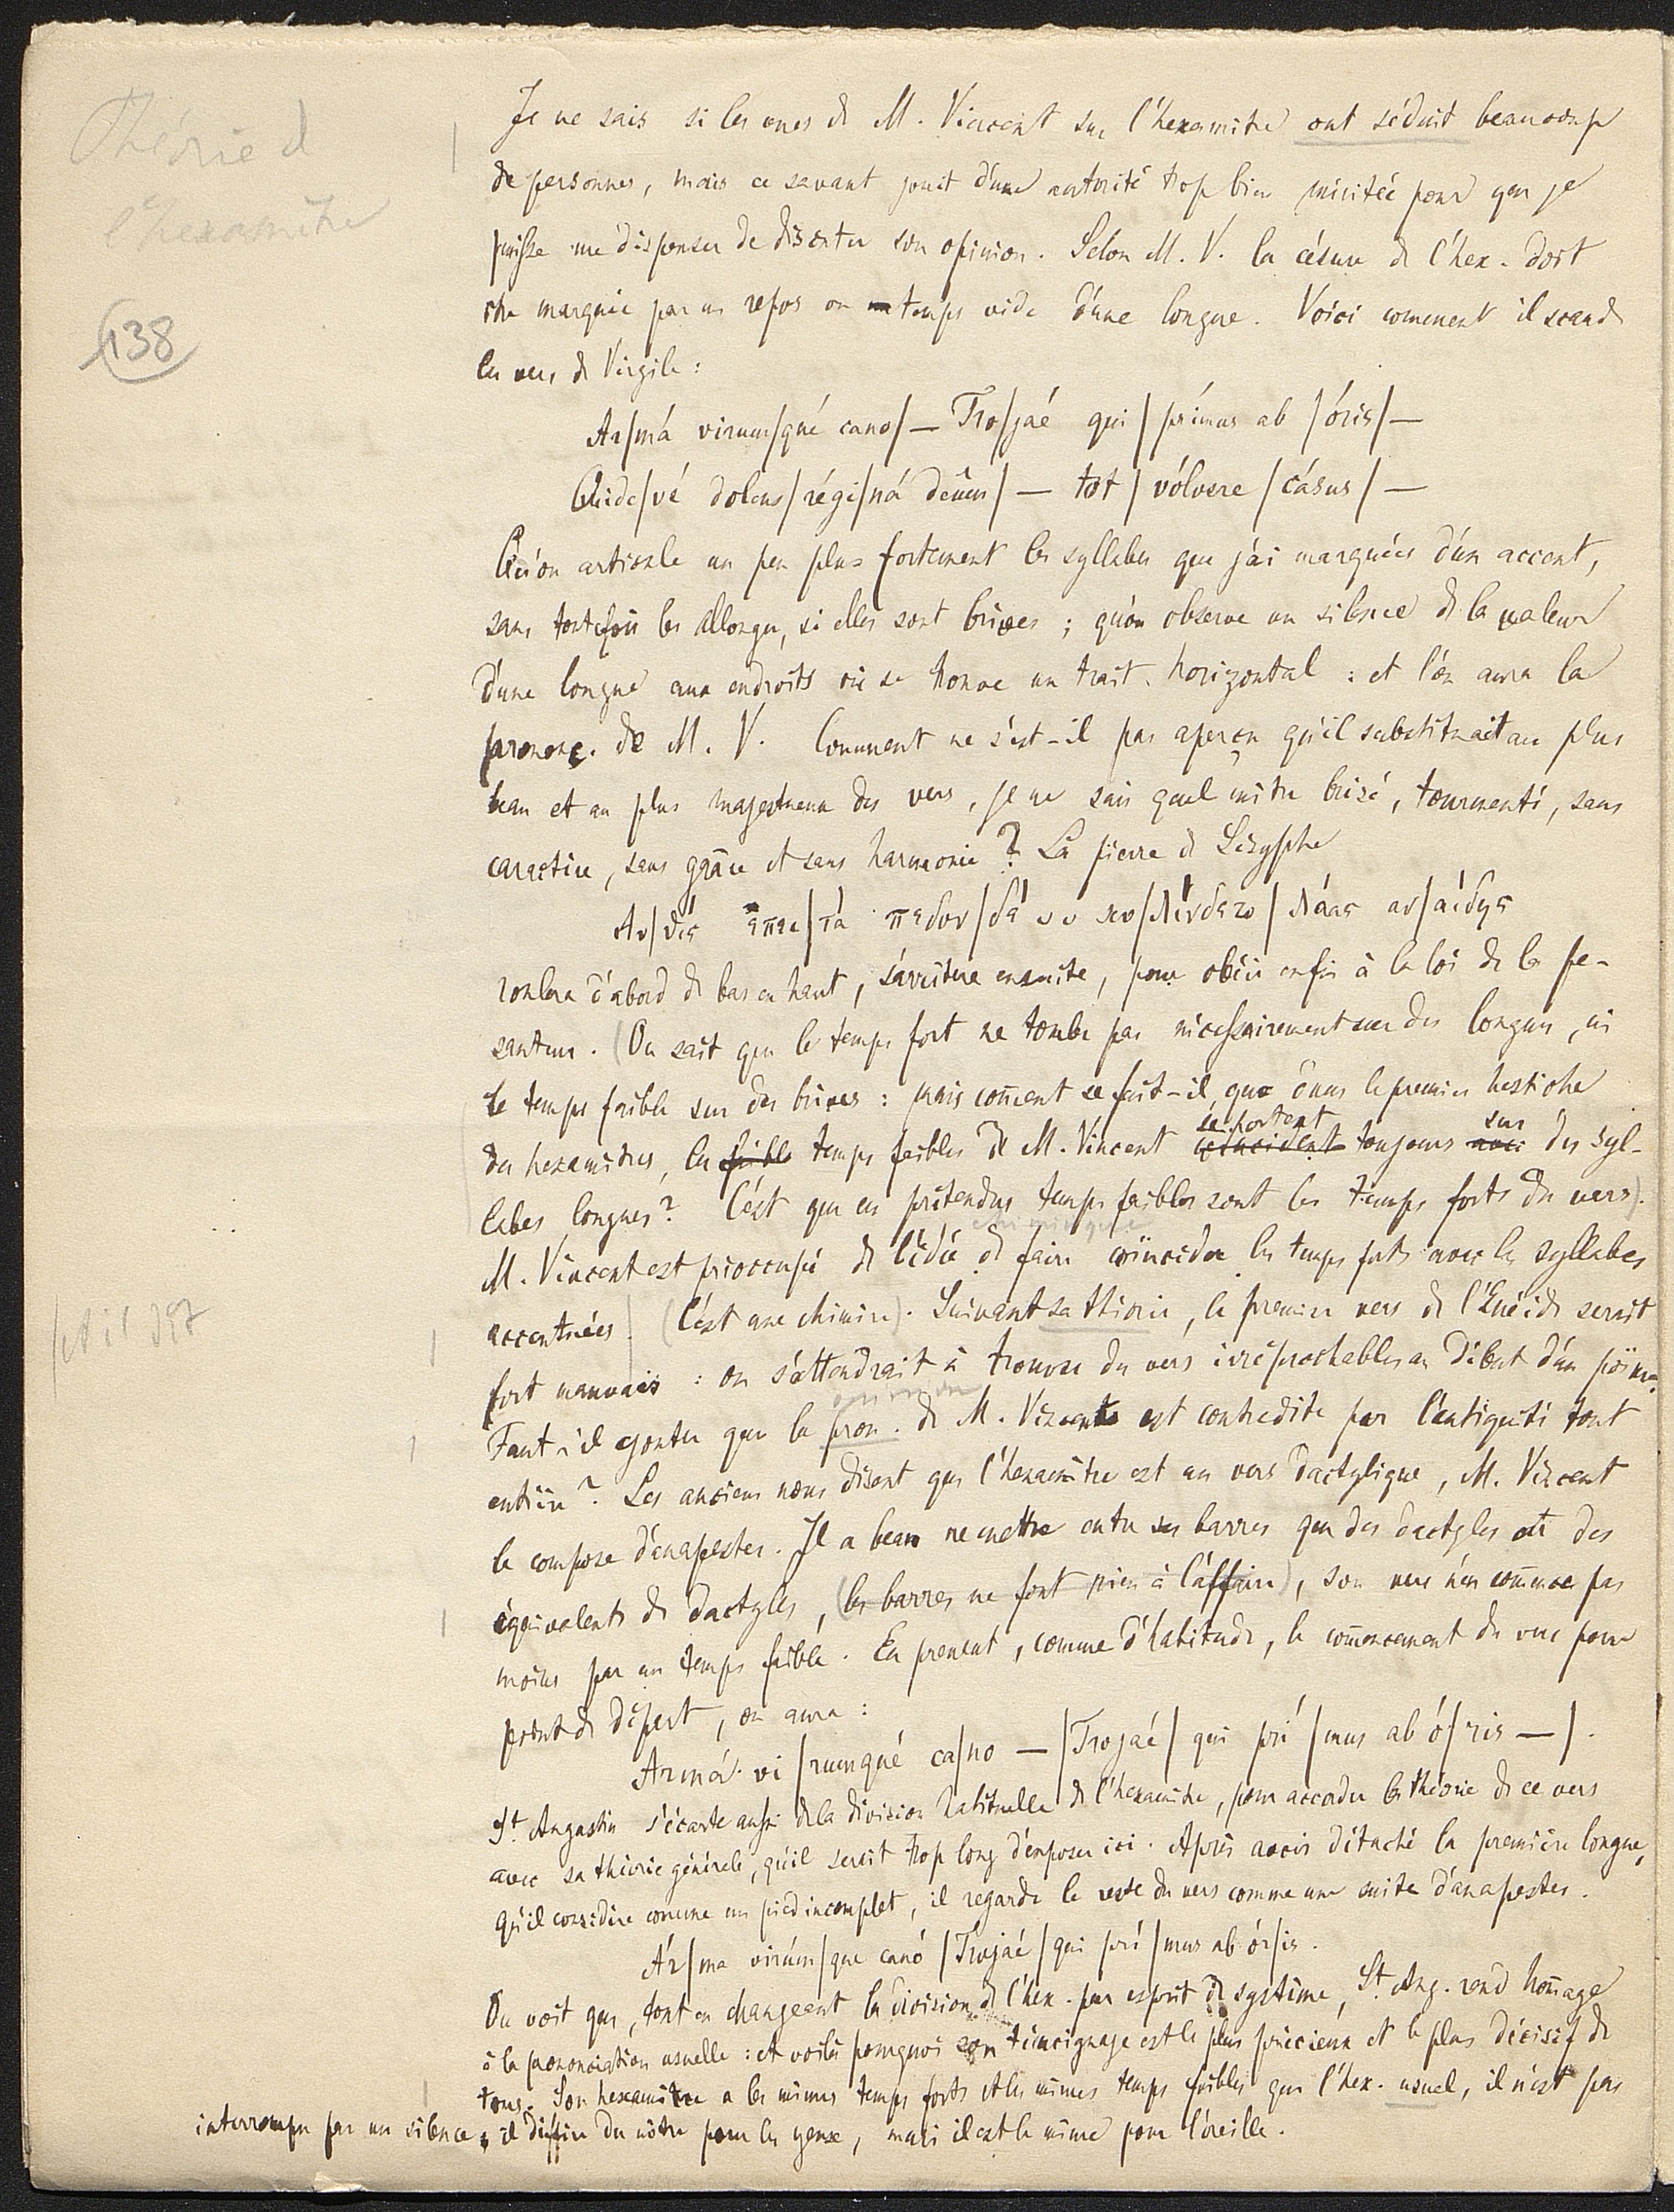 Théorie d
l'hexamètre
138
Je ne sais si les vues de M. Vincent sur l'hexamètre ont séduit beaucoup
de personnes, mais ce savant jouit d'une autorité trop bien méritée pour que je
puisse me dispenser de discuter son opinion. Selon M. V. la césure de l'hex. doit
être marquée par un repos ou temps vide d'une longue. Voici comment il scande
les vers de Virgile :
Ar/má virum/qué cano/— Tro/jaé qui / prímus ab / óris/—
Quide/vé dolens/régi/ná deûm/— tot / vólvere / cásus/—
Qu'on articule un peu plus fortement les syllabes que j'ai marquées d'un accent,
sans toutefois les allonger, si elles sont brèves ; qu'on observe un silence de la valeur
d'une longue aux endroits où se trouve un trait horizontal : et l'on aura la
prononc. de M. V. Comment ne s'est-il pas aperçu qu'il substituait au plus
beau et au plus majestueux des vers, je ne sais quel mètre brisé, tourmenté, sans
caractère, sans grâce et sans harmonie ? La pierre de Sisyphe
Αυ/θίς ἔπει/τά πεδον/δέ υυ κυ/λίνδετο / λάας αν/αίδης
roulera d'abord de bas en haut, s'arrêtera ensuite, pour obéir enfin à la loi de la pe-
santeur. (On sait que le temps fort ne tombe pas nécessairement sur des longues, ni
le temps faible sur des brèves : mais com̄ent se fait-il, que dans le premier hestiche
des hexamètres, les faible temps faibles de M. Vincent coïncident se portent toujours avec sur des syl-
labes longues? C'est que ces prétendus temps faibles sont les temps forts du vers).
chimérique
M. Vincent est préoccupé de l'idée de faire coïncider les temps forts avec les syllabes
accentuées. (C'est une chimère). Suivant sa théorie, le premier vers de l'Enéide serait
fort mauvais : on s'attendrait à trouver des vers irréprochables au début d'un poëme.
opinion
Faut-il ajouter que la pron. de M. Vincent est contredite par l'antiquité tout
entière ? Les anciens nous disent que l'hexamètre est un vers dactylique, M. Vincent
le compose d'anapestes. Il a beau ne mettre entre ses barres que des dactyles et des
équivalents de dactyles, (les barres ne font rien à l'affaire), son vers n'en com̄ence pas
moins par un temps faible. En prenant, comme d'habitude, le com̄encement du vers pour
point de départ, on aura :
Armá vi /rumqué ca/no — /Trojaé/ qui prí /mus ab ó/ris —/.
St. Augustin s'écarte aussi de la division habituelle de l'hexamètre, pour accorder la théorie de ce vers
avec sa théorie générale, qu'il serait trop long d'exposer ici. Après avoir détaché la première longue,
qu'il considère comme un pied incomplet, il regarde le reste du vers comme une suite d'anapestes.
Ár/ma virúm/que canó /Trojaé/qui prí /mus ab ór/is.
On voit que, tout en changeant la division de l'hex. par esprit de système, St. Aug. rend hom̄age
à la prononciation usuelle : et voilà pourquoi son témoignage est le plus précieux et le plus décisif de
tous. Son hexamètre a les mêmes temps forts et les mêmes temps faibles que l'hex. usuel, il n'est pas
interrompu par un silence ; il diffère du nôtre pour les yeux, mais il est le même pour l'oreille.